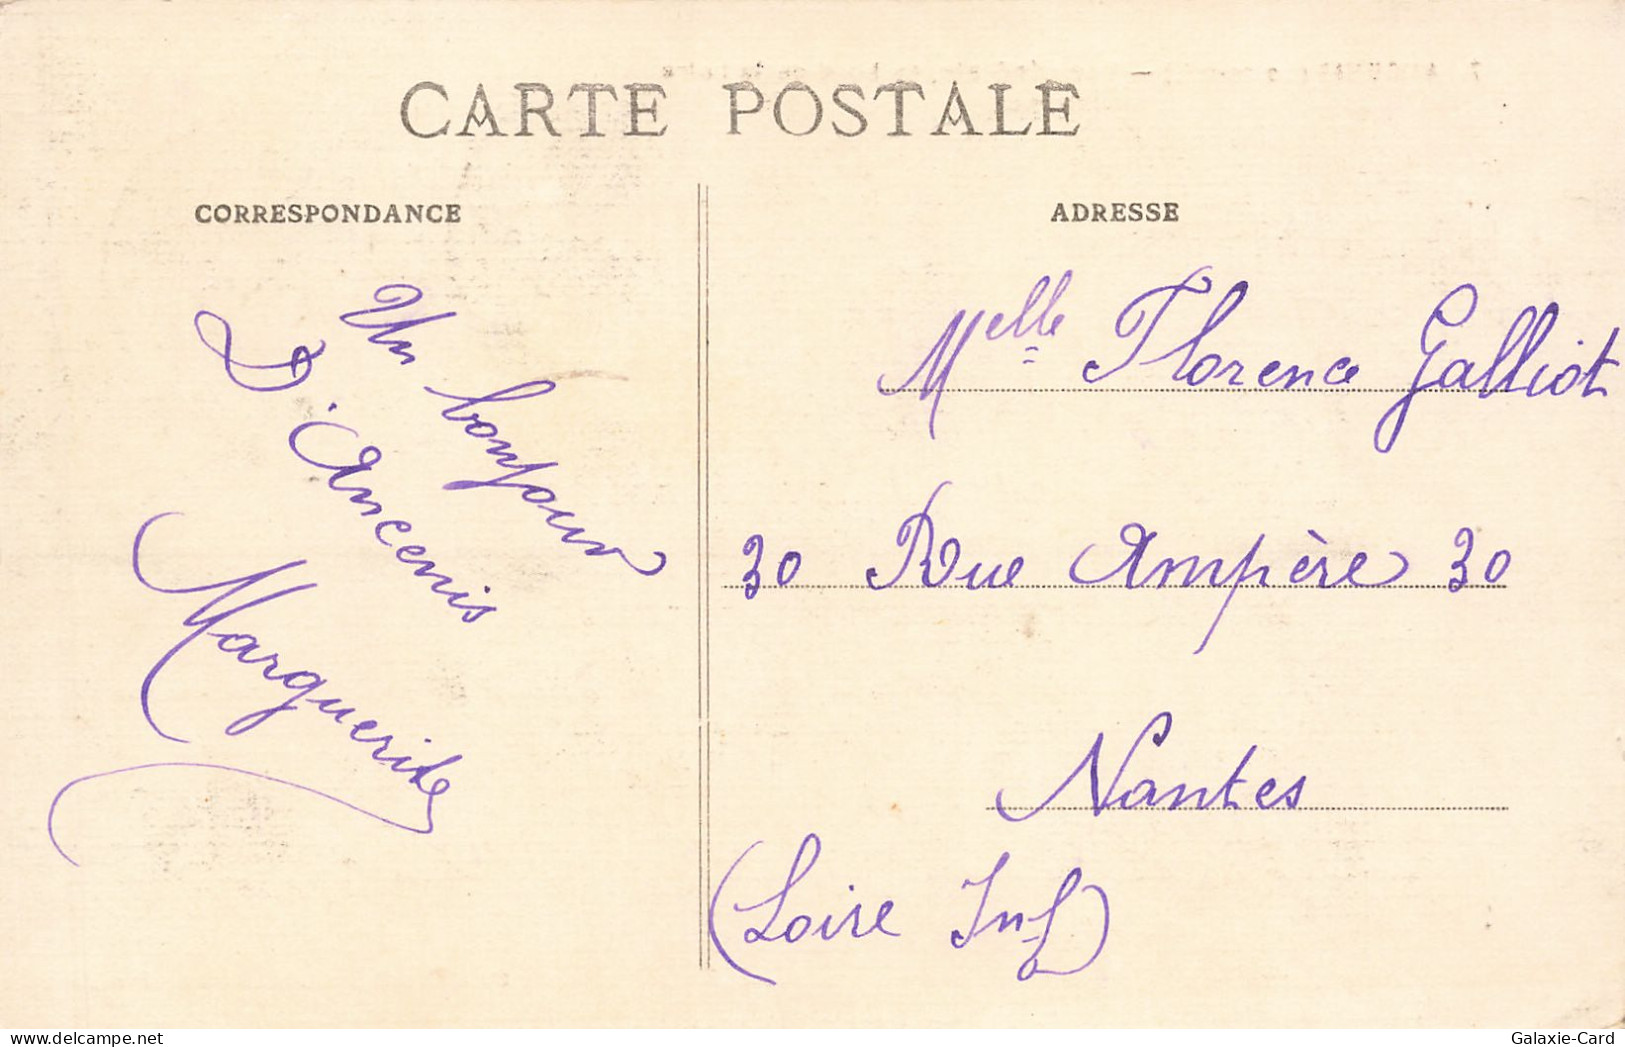 CARTE POSTALE
CORRESPONDANCE
Un bonjour
D'Ancenis
Marguerite
ADRESSE
Melle Florence Galliot
30 Rue Ampère 30
Nantes
(Loire Inf)
delcampe.net
Galaxie-Card